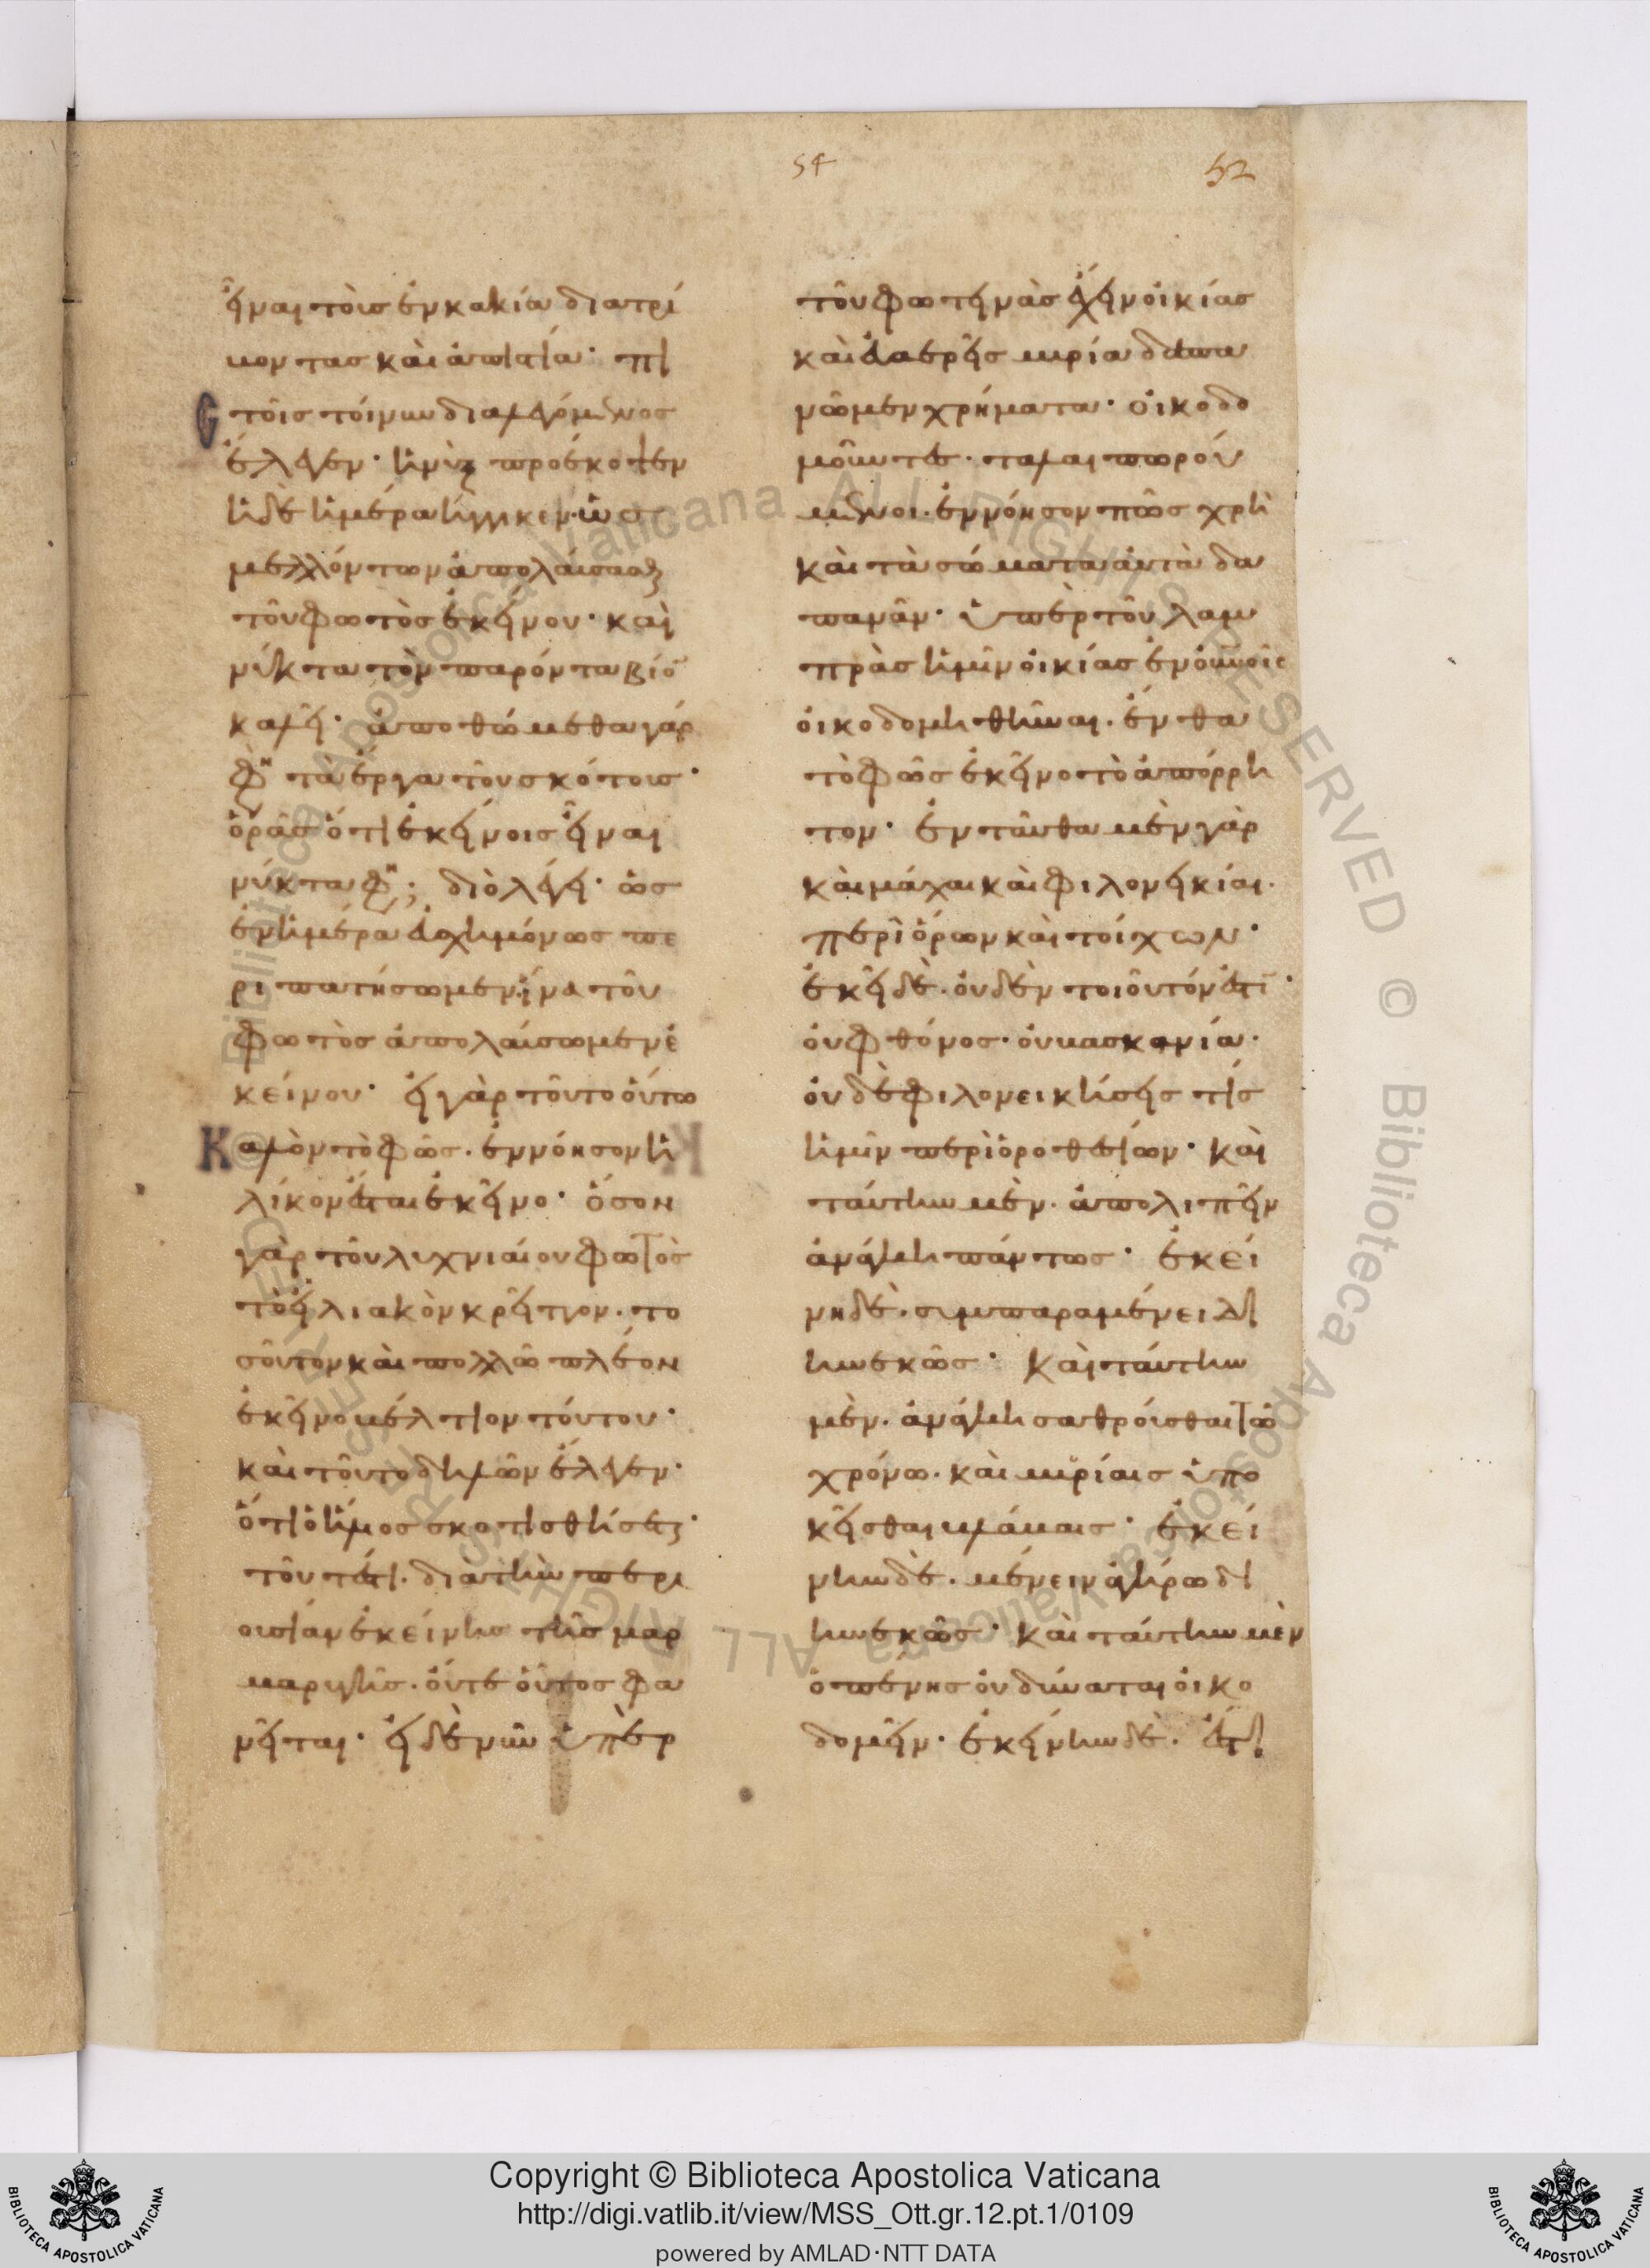 54
52
εἶναι τοῖς ἐν κακία διατρί
βοντας καὶ ἀπιστία· πι
στοῖς τοίνυν διαλεγόμενος
ἔλεγεν· ἡ νὺξ προέκοψεν
ἡ δὲ ἡμέρα ἤγγικεν· ὡς
μελλόντων ἀπολαύσεσθαι
τοῦ φωτὸς ἐκείνου· καὶ
νύκτα τὸν παρόντα βίον
καλεῖ· ἀποθώμεθα γὰρ
φη τὰ ἔργα τοῦ σκότους·
ὁρᾶς ὅτι ἐκείνοις εἶναι
νύκτα φη; διὸ λέγει· ὡς
ἐν ἡμέρα εὐσχημόνως πε
ριπατήσωμεν· ἵνα τοῦ
φωτὸς ἀπολαύσωμεν ἐ
κείνου· εἰ γὰρ τοῦτο οὕτω
Καλὸν τὸ φῶς· ἐννόησον ἡ
λίκον ἔσται ἐκεῖνο· ὅσον
γὰρ τοῦ λυχνιαίου φωτὸς
τὸ ἡλιακὸν κρεῖττον· το
σοῦτον καὶ πολλῶ πλέον
ἐκεῖνο βέλτιον τούτου·
καὶ τοῦτο δηλῶν ἔλεγεν·
ὅτι ὁ ἥλιος σκοτισθήσεται·
τουτέστι· διὰ τὴν περι
ουσίαν ἐκείνης τῆς μαρ
μαρυγῆς· οὔτε οὗτος φα
νεῖται· εἰ δὲ νῦν ὑπὲρ
τοῦ φωτεινὰς ἔχειν οἰκίας
καὶ εὐαερεῖς μυρία δαπα
νῶμεν χρήματα· οἰκοδο
μοῦντες· ταλαιπωρού
μενοι· ἐννόησον πῶς χρὴ
καὶ τὰ σώματα αὐτὰ δα
πανᾶν· ὑπὲρ τοῦ λαμ
πρὰς ἡμῖν οἰκίας ἐν οὐνοῖς
οἰκοδομηθῆναι· ἔνθα
τὸ φῶς ἐκεῖνο τὸ ἀπόρρη
τον· ἐνταῦθα μὲν γὰρ
καὶ μάχαι καὶ φιλονεικίαι·
περὶ ὅρων καὶ τοίχων·
ἐκεῖ δὲ· οὐδὲν τοιοῦτόν ἐστι·
οὐ φθόνος· οὐ βασκανία·
οὐδὲ φιλονεικήσει τίς
ἡμῖν περὶ ὁροθεσίων· καὶ
ταύτην μὲν· ἀπολιπεῖν
ἀνάγκη πάντως· ἐκεί
νη δὲ· συμπαραμένει δι
ηνεκῶς· Καὶ ταύτην
μὲν· ἀνάγκη σαθροῦσθαι τῶ
χρόνω· καὶ μυρίαις ὑπο
κεῖσθαι βλάβαις· ἐκεί
νην δὲ· μένειν ἀγήρω δι
ηνεκῶς· Καὶ ταύτην μὲν
ὁ πένης οὐ δύναται οἰκο
δομεῖν· ἐκείνην δὲ· ἔστι
Copyright © Biblioteca Apostolica Vaticana
http://digi.vatlib.it/view/MSS_Ott.gr.12.pt.1/0109
powered by AMLAD·NTT DATA